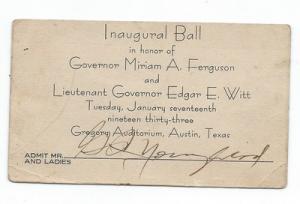 Inaugural Ball
in honor of
Governor Miriam A. Ferguson
and
Lieutenant Governor Edgar E. Witt
Tuesday, January seventeenth
nineteen thirty-three
Gregory Auditorium, Austin, Texas
ADMIT MR.
AND LADIES